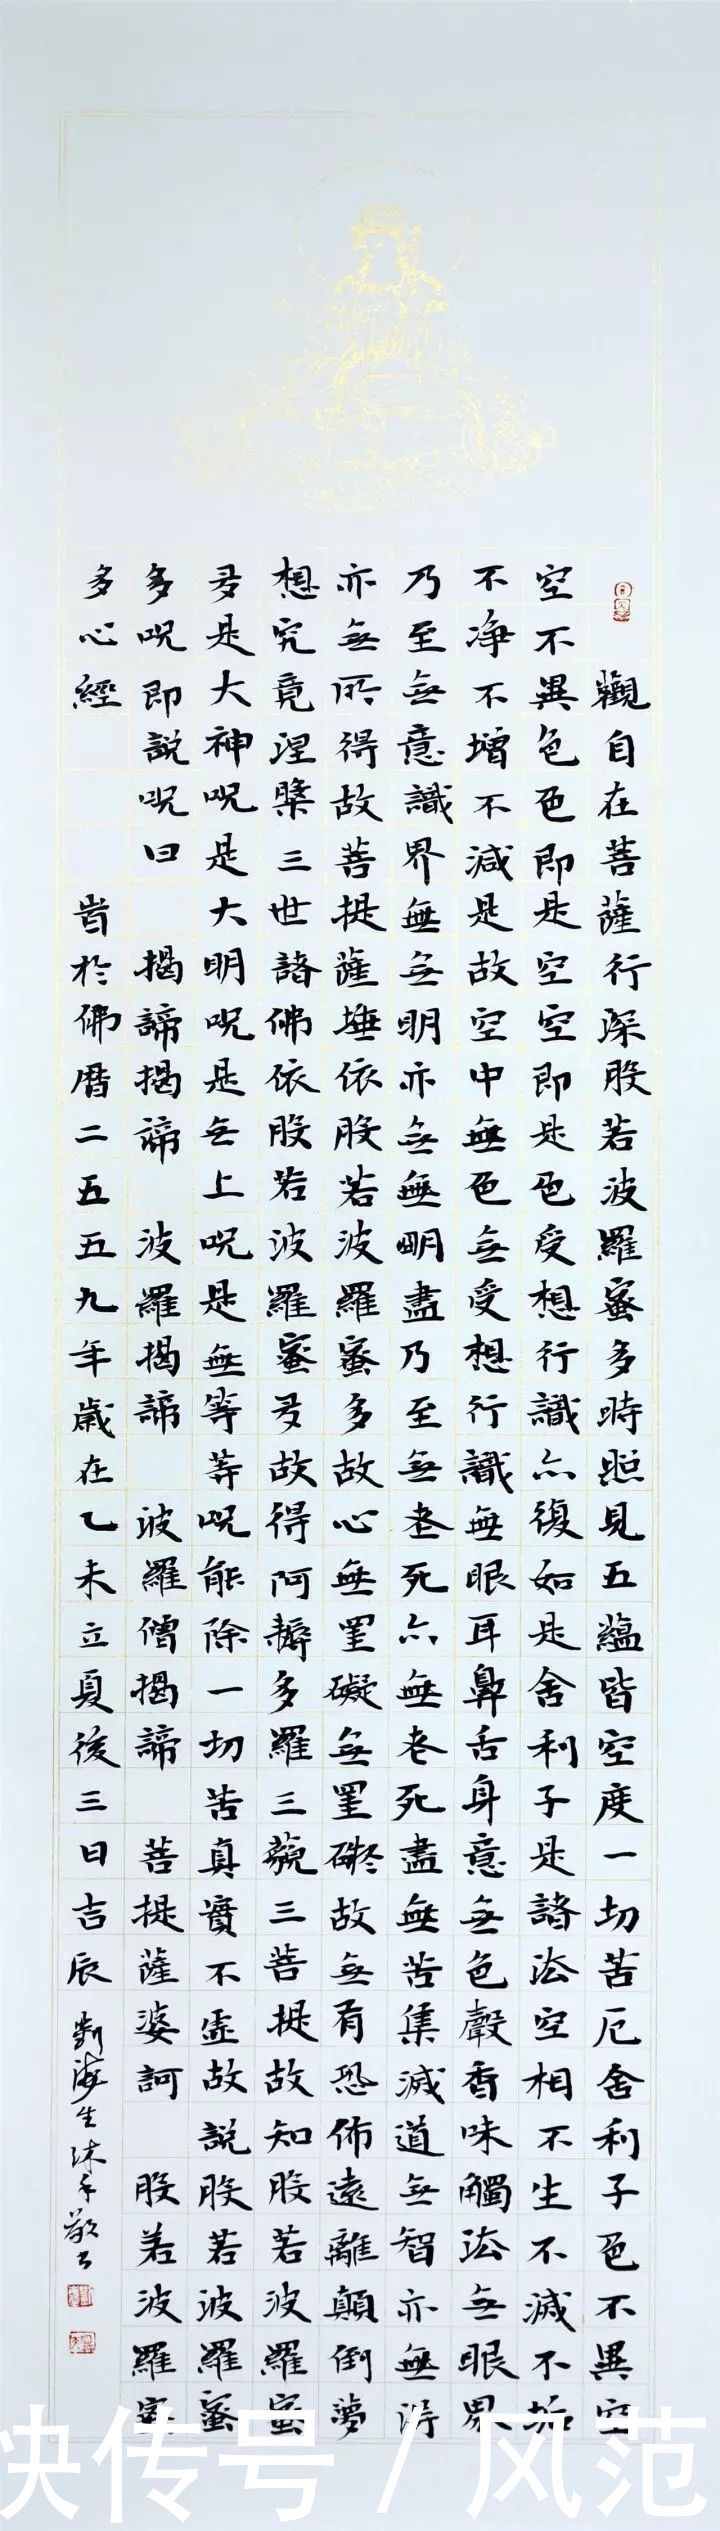 觀自在菩薩行深般若波羅蜜多時照見五蘊皆空度一切苦厄舍利子色不異空
空不異色色即是空空即是色受想行識亦復如是舍利子是諸法空相不生不滅不垢
不净不增不減是故空中無色無受想行識無眼耳鼻舌身意無色聲香味觸法無眼界
乃至無意識界無無明亦無無明盡乃至無老死亦無老死盡無苦集滅道無智亦無得
亦無所得故菩提薩埵依般若波羅蜜多故心無罣礙無罣礙故無有恐佈遠離顛倒夢
想究竟涅槃三世諸佛依般若波羅蜜多故得阿耨多羅三藐三菩提故知般若波羅蜜
多是大神呪是大明呪是無上呪是無等等呪能除一切苦真實不虛故説般若波羅蜜
多呪即説呪曰 揭諦揭諦 波羅揭諦 波羅僧揭諦 菩提薩婆訶 般若波羅蜜
多心經 旹於佛曆二五五九年歲在乙未立夏後三日吉辰 劉海生沐手敬書
快传号 / 风范